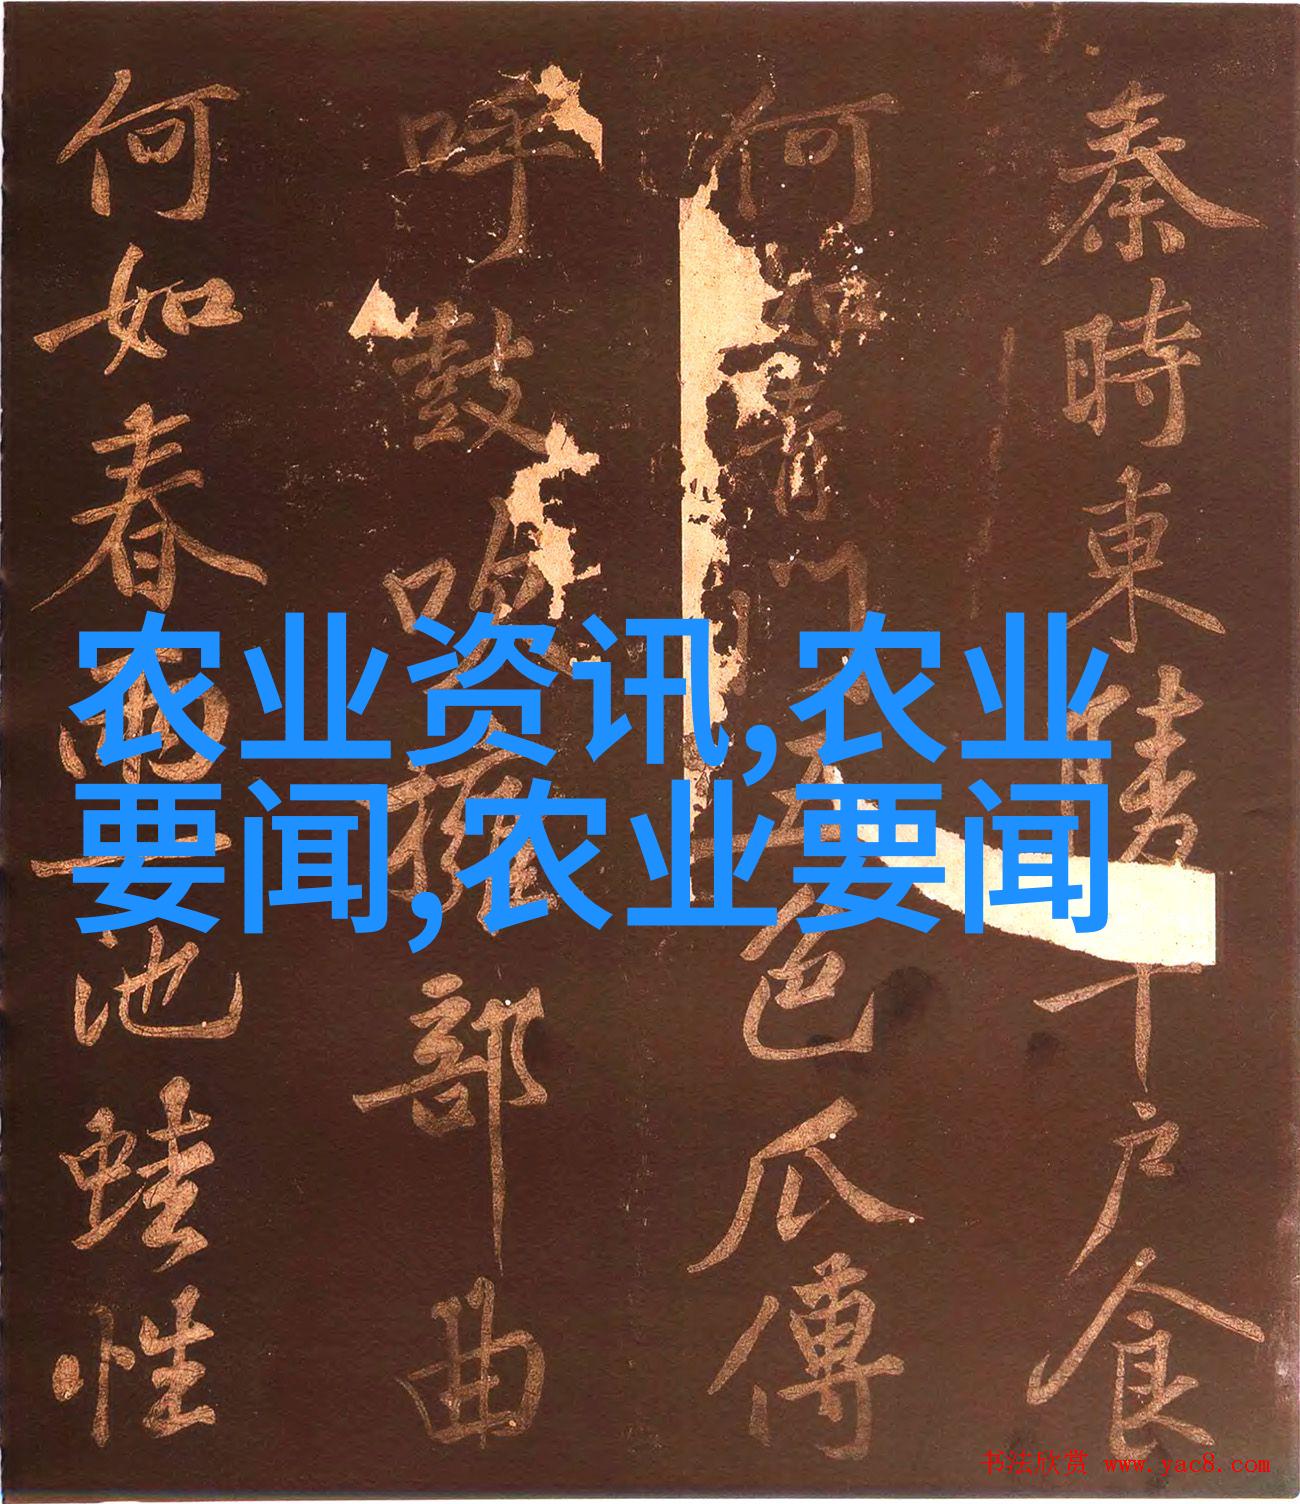 秦時東陵千戶食
何如青門五色瓜傳
呼鼓吹擁部曲
何如春雨一池蛙性
农业资讯,农业
要闻,农业要闻
书法欣赏 www.yac8.com